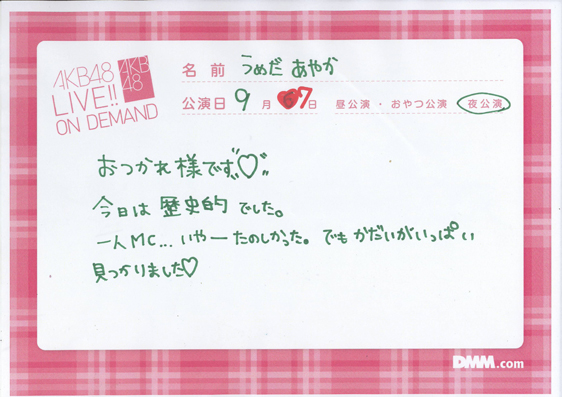 AKB48
LIVE!!
ON DEMAND
AKB
48
名前 うめだ あやか
公演日 9月 7日 昼公演・おやつ公演 夜公演
おつかれ様です♡
今日は歴史的でした。
一人MC... いやーたのしかった。でもかだいがいっぱい
見つかりました♡
DMM.com